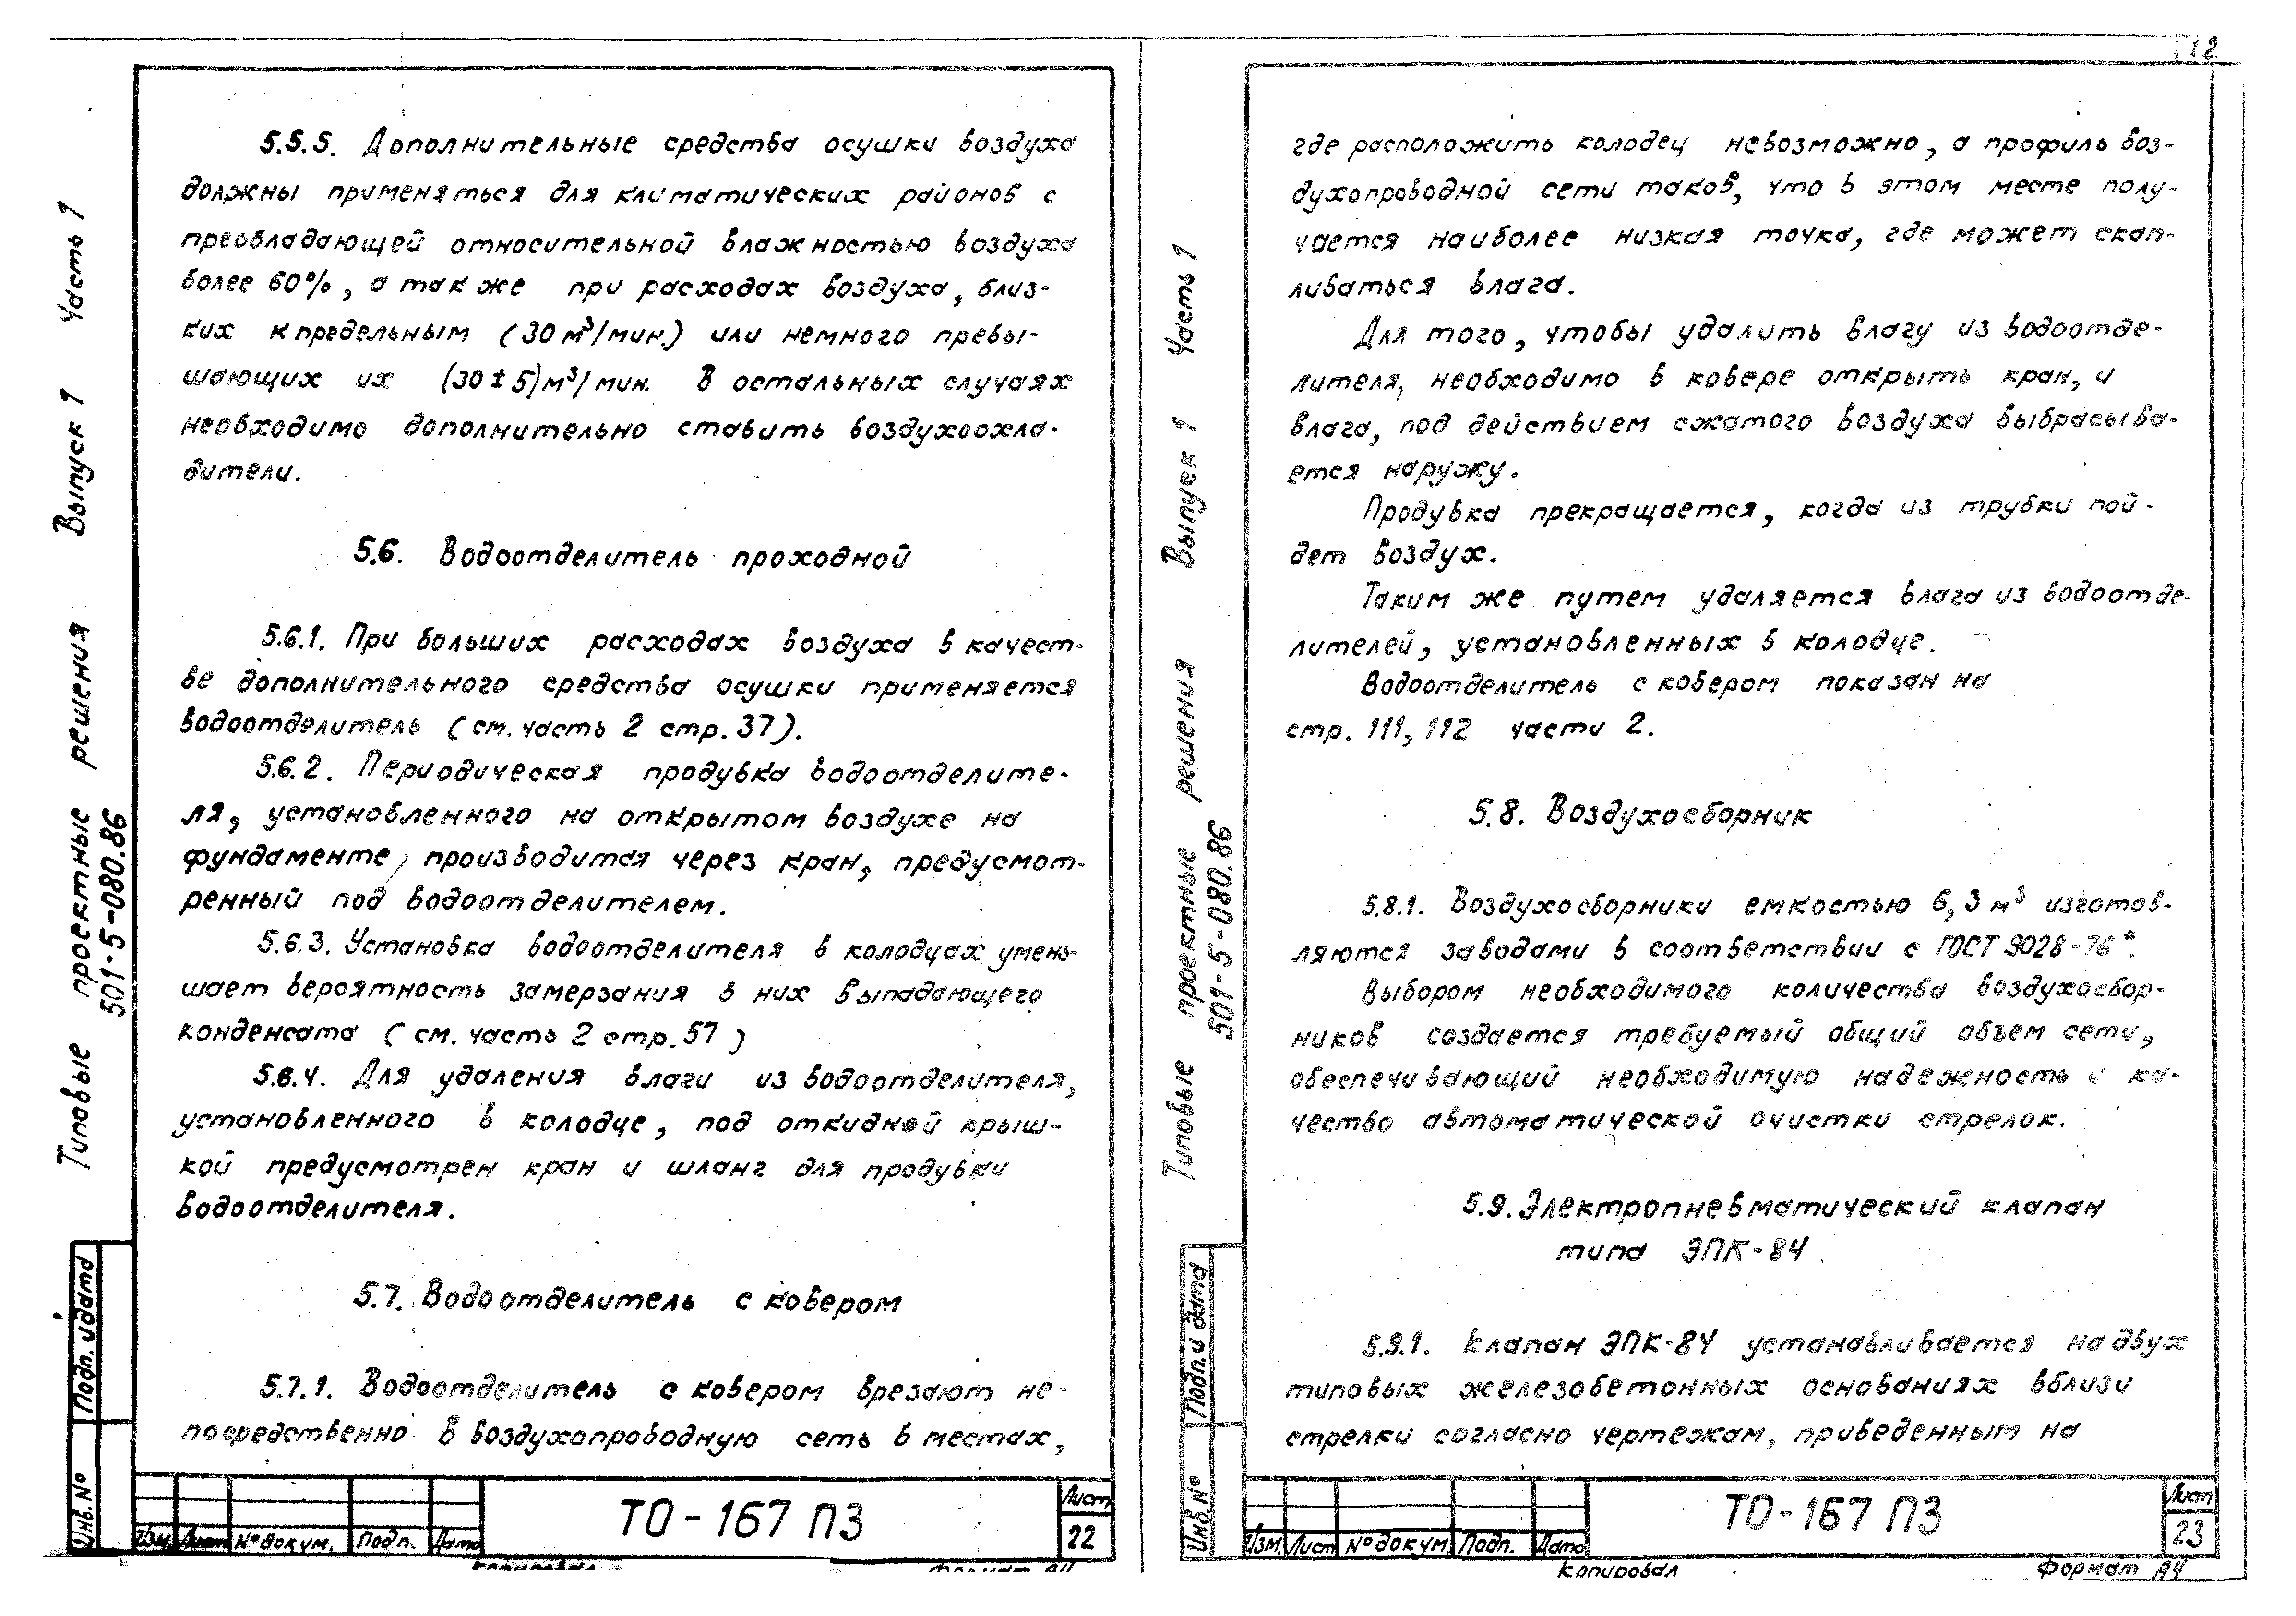 12
5.5.5. Дополнительные средства осушки воздуха
должны применяться для климатических районов с
преобладающей относительной влажностью воздуха
более 60%, а так же при расходах воздуха, близ-
ких к предельным (30 м³/мин.) или немного превы-
шающих их (30 ± 5) м³/мин. В остальных случаях
необходимо дополнительно ставить воздухоохла-
дители.
5.6. Водоотделитель проходной
5.6.1. При больших расходах воздуха в качест-
ве дополнительного средства осушки применяется
водоотделитель (см. часть 2 стр. 37).
5.6.2. Периодическая продувка водоотделите-
ля, установленного на открытом воздухе на
фундаменте, производится через кран, предусмот-
ренный под водоотделителем.
5.6.3. Установка водоотделителя в колодцах умень-
шает вероятность замерзания в них выпадающего
конденсата (см. часть 2 стр. 57)
5.6.4. Для удаления влаги из водоотделителя,
установленного в колодце, под откидной крыш-
кой предусмотрен кран и шланг для продувки
водоотделителя.
5.7. Водоотделитель с ковером
5.7.1. Водоотделитель с ковером врезают не-
посредственно в воздухопроводную сеть в местах,
Типовые проектные решения Выпуск 1 Часть 1
501-5-080.86
Подп. и дата
Инв. №
Изм. Лист № докум. Подп. Дата
ТО-167 ПЗ
Лист
22
Копировал
Формат А4
где расположить колодец невозможно, а профиль воз-
духопроводной сети таков, что в этом месте полу-
чается наиболее низкая точка, где может скап-
ливаться влага.
Для того, чтобы удалить влагу из водоотде-
лителя, необходимо в ковере открыть кран, и
влага, под действием сжатого воздуха выбрасыва-
ется наружу.
Продувка прекращается, когда из трубки пой-
дет воздух.
Таким же путем удаляется влага из водоотде-
лителей, установленных в колодце.
Водоотделитель с ковером показан на
стр. 111, 112 части 2.
5.8. Воздухосборник
5.8.1. Воздухосборники емкостью 6,3 м³ изготов-
ляются заводами в соответствии с ГОСТ 9028-76*.
Выбором необходимого количества воздухосбор-
ников создается требуемый общий объем сети,
обеспечивающий необходимую надежность и ка-
чество автоматической очистки стрелок.
5.9. Электропневматический клапан
типа ЭПК-84
5.9.1. Клапан ЭПК-84 устанавливается на двух
типовых железобетонных основаниях вблизи
стрелки согласно чертежам, приведенным на
Типовые проектные решения Выпуск 1 Часть 1
501-5-080.86
Подп. и дата
Инв. №
Изм. Лист № докум. Подп. Дата
ТО-167 ПЗ
Лист
23
Копировал
Формат А4